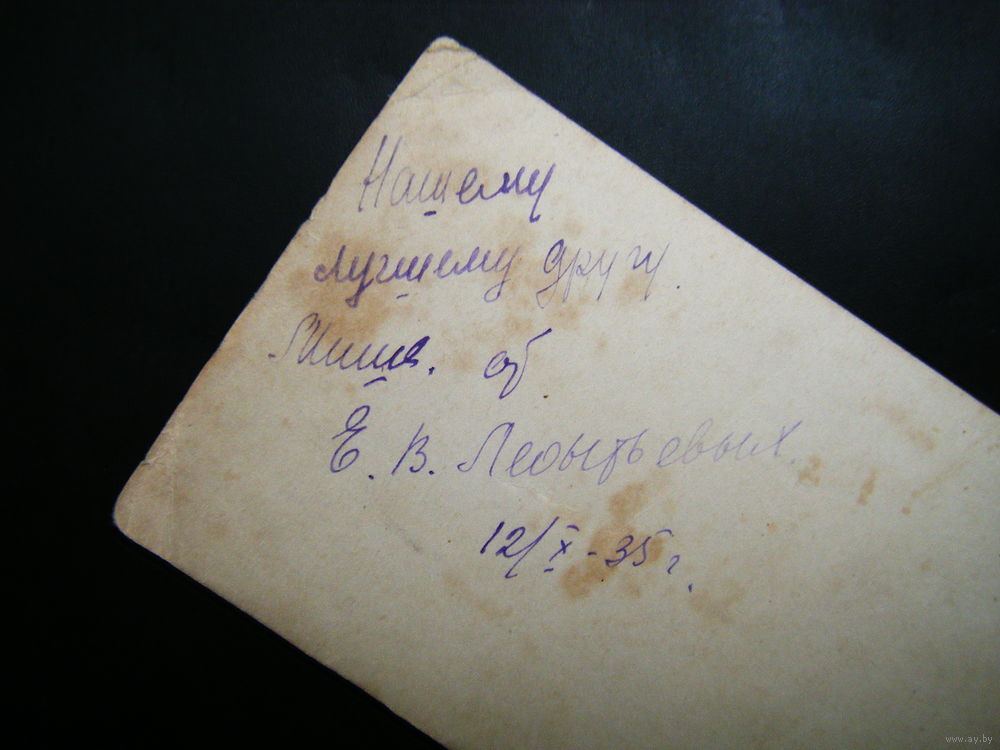 Нашему
лучшему другу.
Мише. от
Е. В. Леонтьевых
12/X - 35 г.
www.ay.by